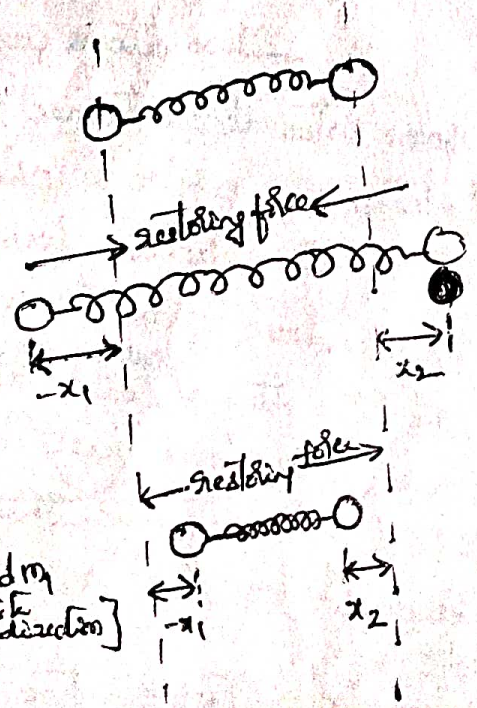 restoring force
-x₁
x₂
restoring force
d m₁
direction]
-x₁
x₂